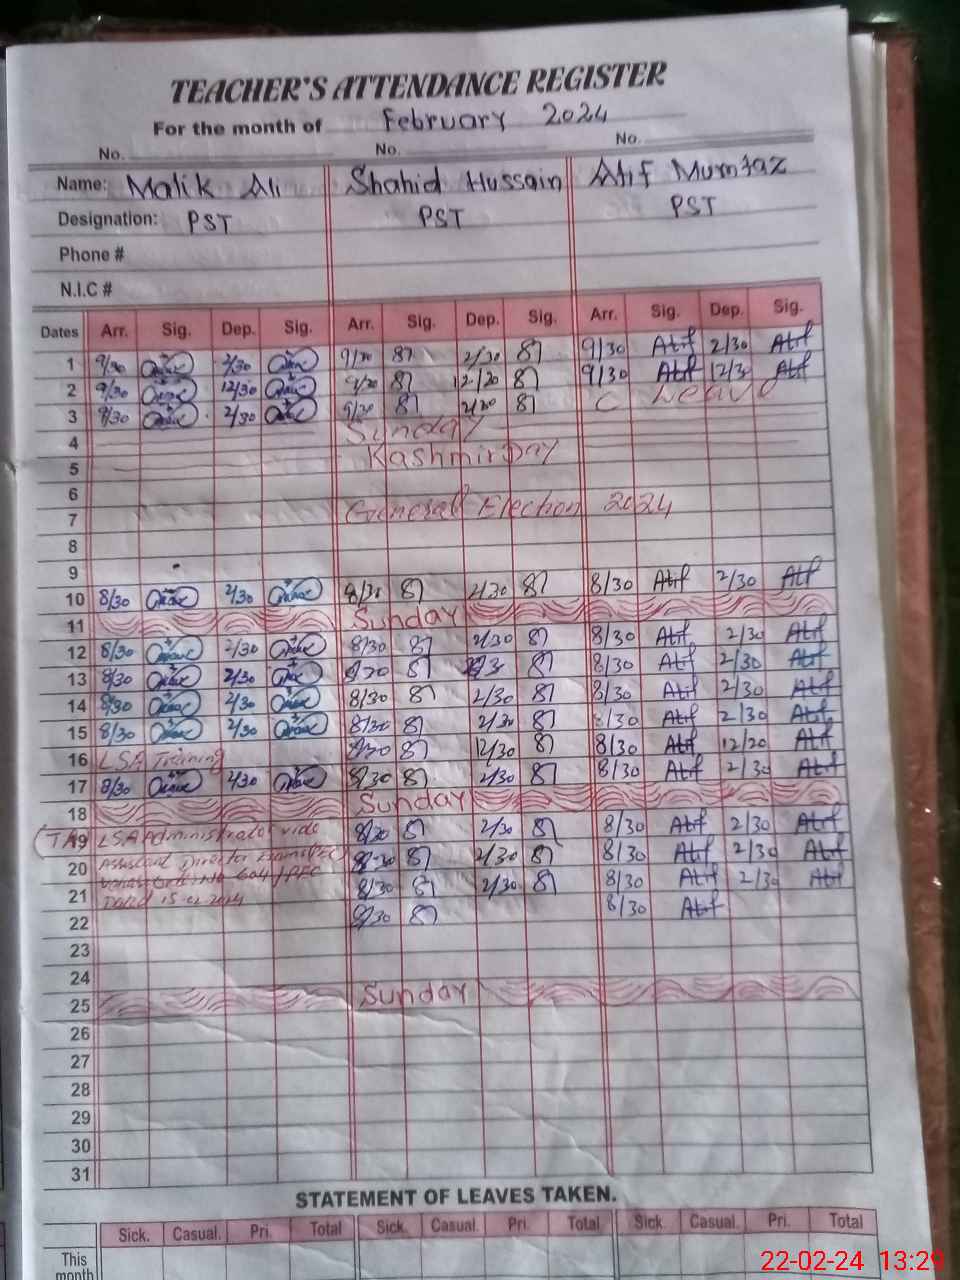 TEACHER'S ATTENDANCE REGISTER
For the month of February 2024
No. No. No.
Name: Malik Ali Shahid Hussain Atif Mumtaz
Designation: PST PST PST
Phone #
N.I.C #
Dates Arr. Sig. Dep. Sig. Arr. Sig. Dep. Sig. Arr. Sig. Dep. Sig.
1 9/30 2/30 9/30 2/30 9/30 Atif 2/30 Atif
2 9/30 12/30 9/30 Atif Atif
3 9/30 2/30 C Leave
4 Sunday
5 Kashmir Day
6
7 General Election 2024
8
9
10 8/30 2/30 8/30 2/30 8/30 Atif 2/30 Atif
11 Sunday
12 8/30 2/30 8/30 2/30 8/30 Atif 2/30 Atif
13 8/30 2/30 8/30 Atif 2/30 Atif
14 8/30 2/30 8/30 2/30 8/30 Atif 2/30 Atif
15 8/30 2/30 8/30 2/30 8/30 Atif 2/30 Atif
16 LSA Training 12/30 8/30 Atif Atif
17 8/30 2/30 8/30 2/30 8/30 Atif 2/30 Atif
18 Sunday
19 LSA Administrator vide 8/30 2/30 8/30 Atif 2/30 Atif
20 Assistant Director 8/30 2/30 8/30 Atif 2/30 Atif
21 8/30 2/30 8/30 Atif 2/30 Atif
Dated 15-02-2024
22 8/30 8/30 Atif
23
24
25 Sunday
26
27
28
29
30
31
STATEMENT OF LEAVES TAKEN.
Sick. Casual. Pri. Total Sick. Casual. Pri. Total Sick. Casual. Pri. Total
This month
22-02-24 13:29